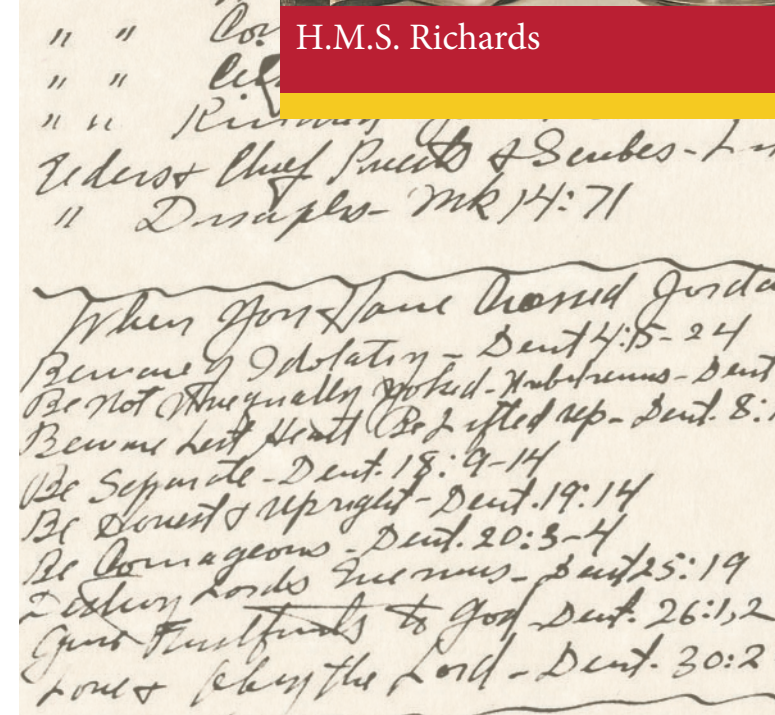 H.M.S. Richards
" " Co
" "
" "
Elders & Chief Priests & Scribes -
" Disciples - Mk 14:71
When You Have Crossed Jorda
Beware of Idolatry - Deut 4:15-24
Be Not Unequally Yoked - - Deut
Beware Lest Heart Be Lifted up - Deut. 8:
Be Separate - Deut. 18:9-14
Be Honest & upright - Deut. 19:14
Be Courageous - Deut. 20:3-4
Destroy Lords Enemies - Deut 25:19
Give Firstfruits to God - Deut. 26:1,2
Love & Obey the Lord - Deut. 30:2